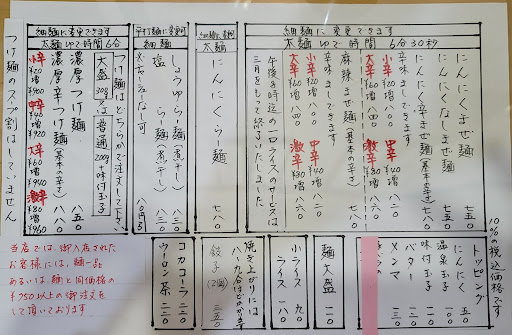 細麺に変更できます
太麺 ゆで時間 6分30秒
にんにくまぜ麺 七五〇
にんにくなしまぜ麺 七五〇
にんにく辛まぜ麺(基本の辛さ) 七八〇
辛味ましできます
小辛 ¥20増 八〇〇
中辛 ¥40増 八二〇
大辛 ¥60増 八四〇
激辛 ¥80増 八六〇
麻辣まぜ麺(基本の辛さ) 七八〇
辛味ましできます
小辛 ¥20増 八〇〇
中辛 ¥40増 八二〇
大辛 ¥60増 八四〇
激辛 ¥80増 八六〇
午後8時迄の一口ライスのサービスは
三月をもって終了いたしました。
太麺
にんにくらー麺 七八〇
平打麺に変更可
細麺
しょうゆらー麺(煮干し) 八三〇
塩らー麺(煮干し) 八三〇
細麺に変更できます
太麺ゆで時間6分
つけ麺はどちらかで注文して下さい
大盛 300g 又は 普通 200g+味付玉子
濃厚つけ麺 八五〇
濃厚辛つけ麺(基本の辛さ) 八八〇
小辛 ¥20増 ¥900
中辛 ¥40増 ¥920
大辛 ¥60増 ¥940
激辛 ¥80増 ¥960
つけ麺のスープ割はしていません
10%の税込価格です
トッピング
にんにく 五〇
温泉玉子
味付玉子
バター
メンマ
麺大盛 一一〇
小ライス 九〇
ライス
焼き上がりには
八、九分ほどかかります
餃子(5個) 三五〇
コカコーラ 二二〇
ウーロン茶 二二〇
当店では、御入店された
お客様には、麺一品
あるいは麺と同価格の
¥750以上の御注文を
して頂いております